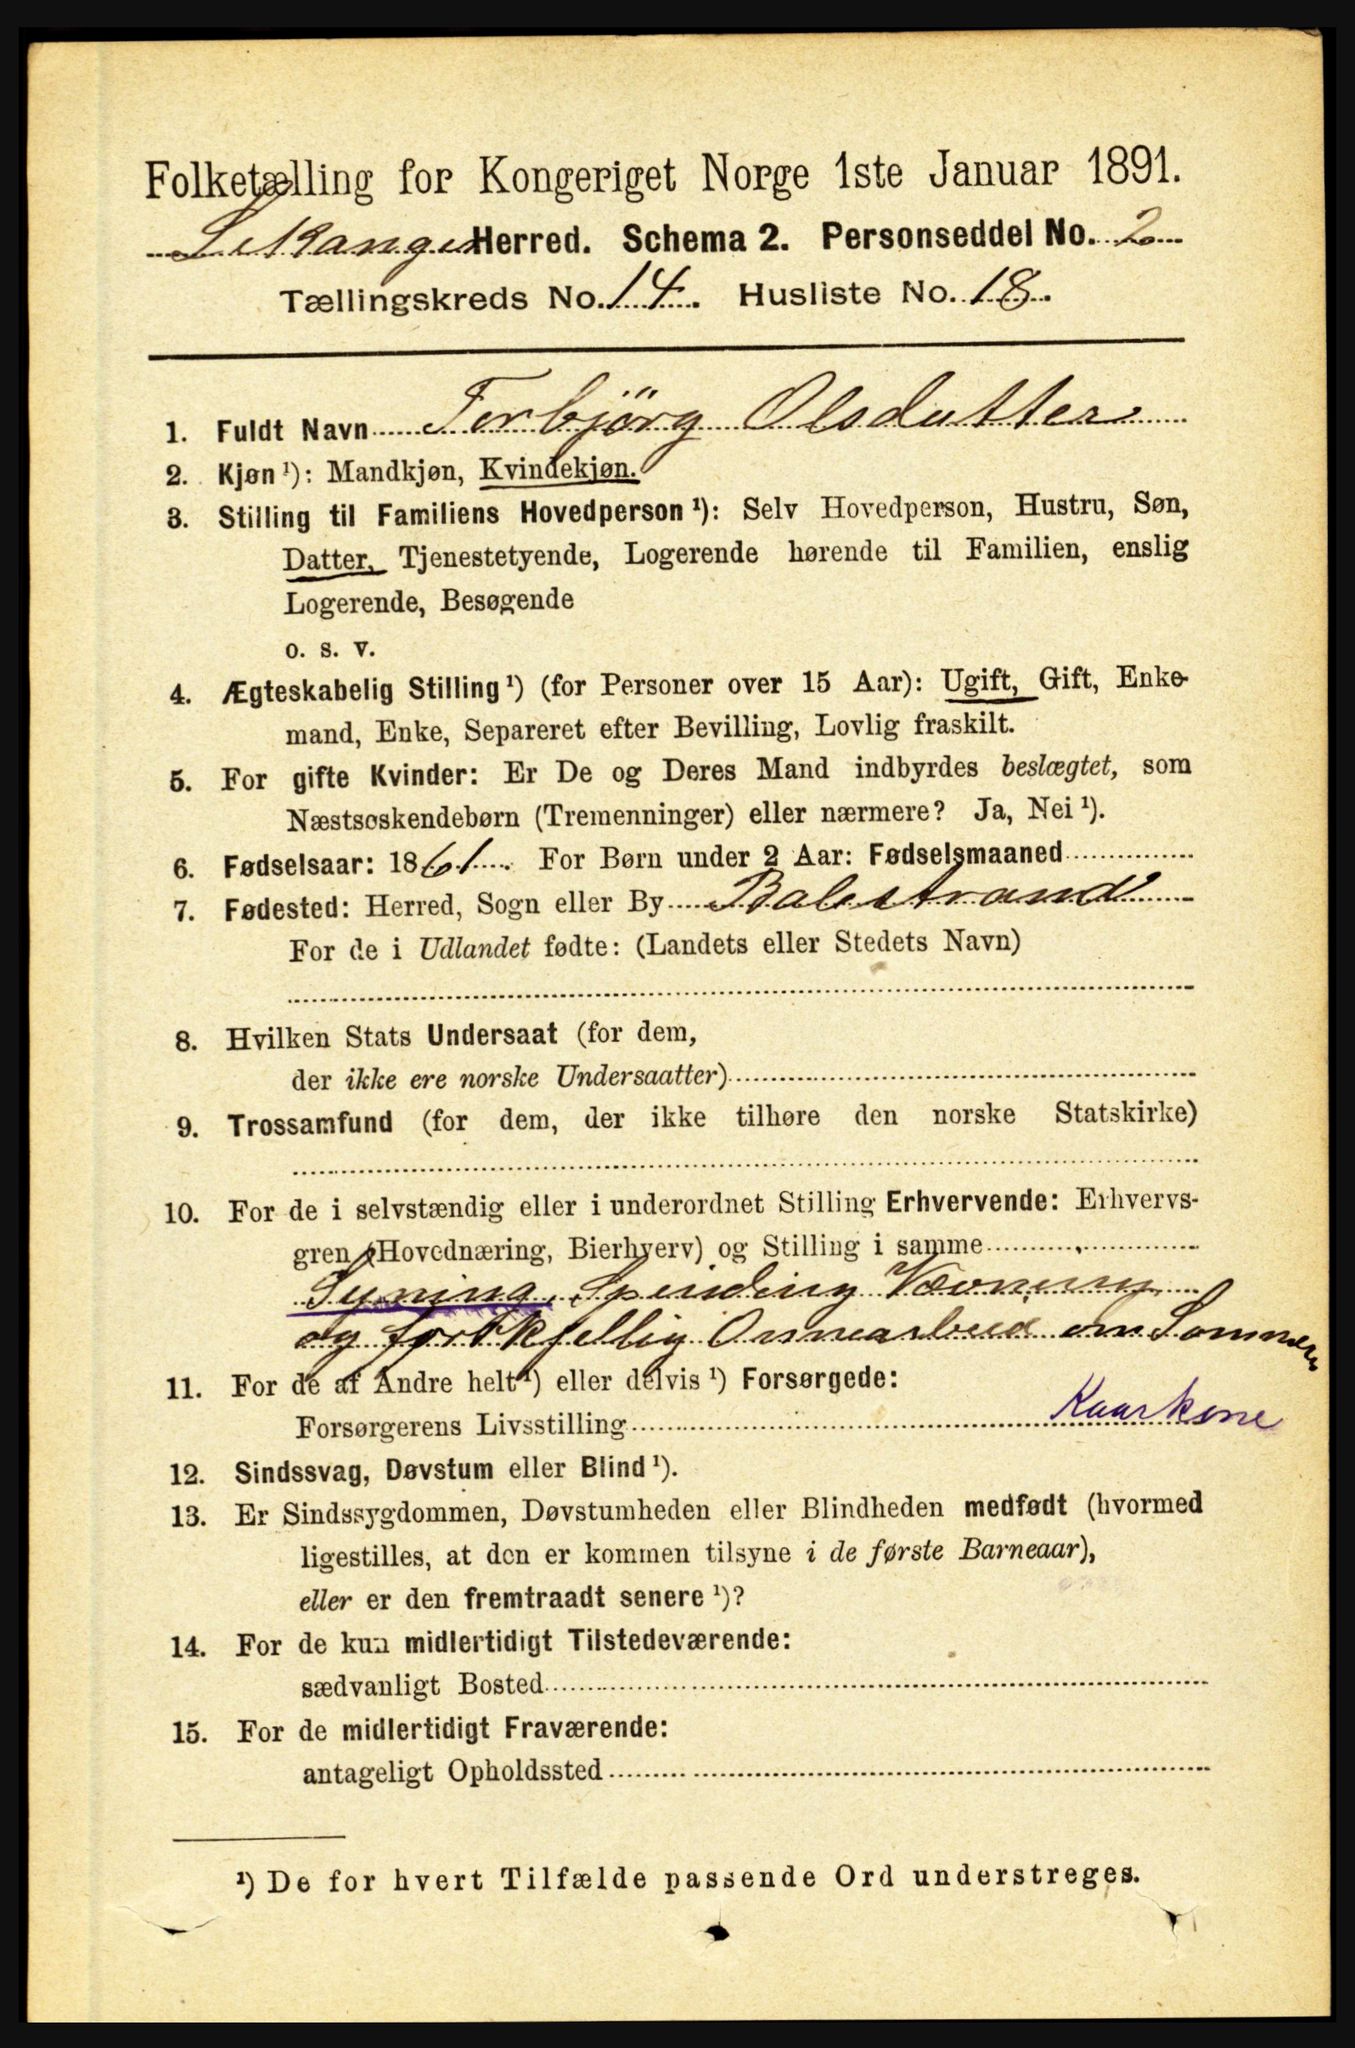 Folketælling for Kongeriget Norge 1ste Januar 1891.
Leikanger Herred. Schema 2. Personseddel No. 2
Tællingskreds No. 14. Husliste No. 18.
1. Fuldt Navn Torbjörg Olsdatter
2. Kjøn ¹): Mandkjøn, Kvindekjøn.
3. Stilling til Familiens Hovedperson ¹): Selv Hovedperson, Hustru, Søn,
Datter, Tjenestetyende, Logerende hørende til Familien, enslig
Logerende, Besøgende
o. s. v.
4. Ægteskabelig Stilling ¹) (for Personer over 15 Aar): Ugift, Gift, Enke-
mand, Enke, Separeret efter Bevilling, Lovlig fraskilt.
5. For gifte Kvinder: Er De og Deres Mand indbyrdes beslægtet, som
Næstsøskendebørn (Tremenninger) eller nærmere? Ja, Nei ¹).
6. Fødselsaar: 1861. For Børn under 2 Aar: Fødselsmaaned
7. Fødested: Herred, Sogn eller By Balestrand
For de i Udlandet fødte: (Landets eller Stedets Navn)
8. Hvilken Stats Undersaat (for dem,
der ikke ere norske Undersaatter)
9. Trossamfund (for dem, der ikke tilhøre den norske Statskirke)
10. For de i selvstændig eller i underordnet Stilling Erhvervende: Erhvervs-
gren (Hovednæring, Bierhverv) og Stilling i samme
Syning, Spinding Vævning
og forskjellig Onnearbeid om Sommeren
11. For de af Andre helt ¹) eller delvis ¹) Forsørgede:
Forsørgerens Livsstilling Kaarkone
12. Sindssvag, Døvstum eller Blind ¹).
13. Er Sindssygdommen, Døvstumheden eller Blindheden medfødt (hvormed
ligestilles, at den er kommen tilsyne i de første Barneaar),
eller er den fremtraadt senere ¹)?
14. For de kun midlertidigt Tilstedeværende:
sædvanligt Bosted
15. For de midlertidigt Fraværende:
antageligt Opholdssted
¹) De for hvert Tilfælde passende Ord understreges.